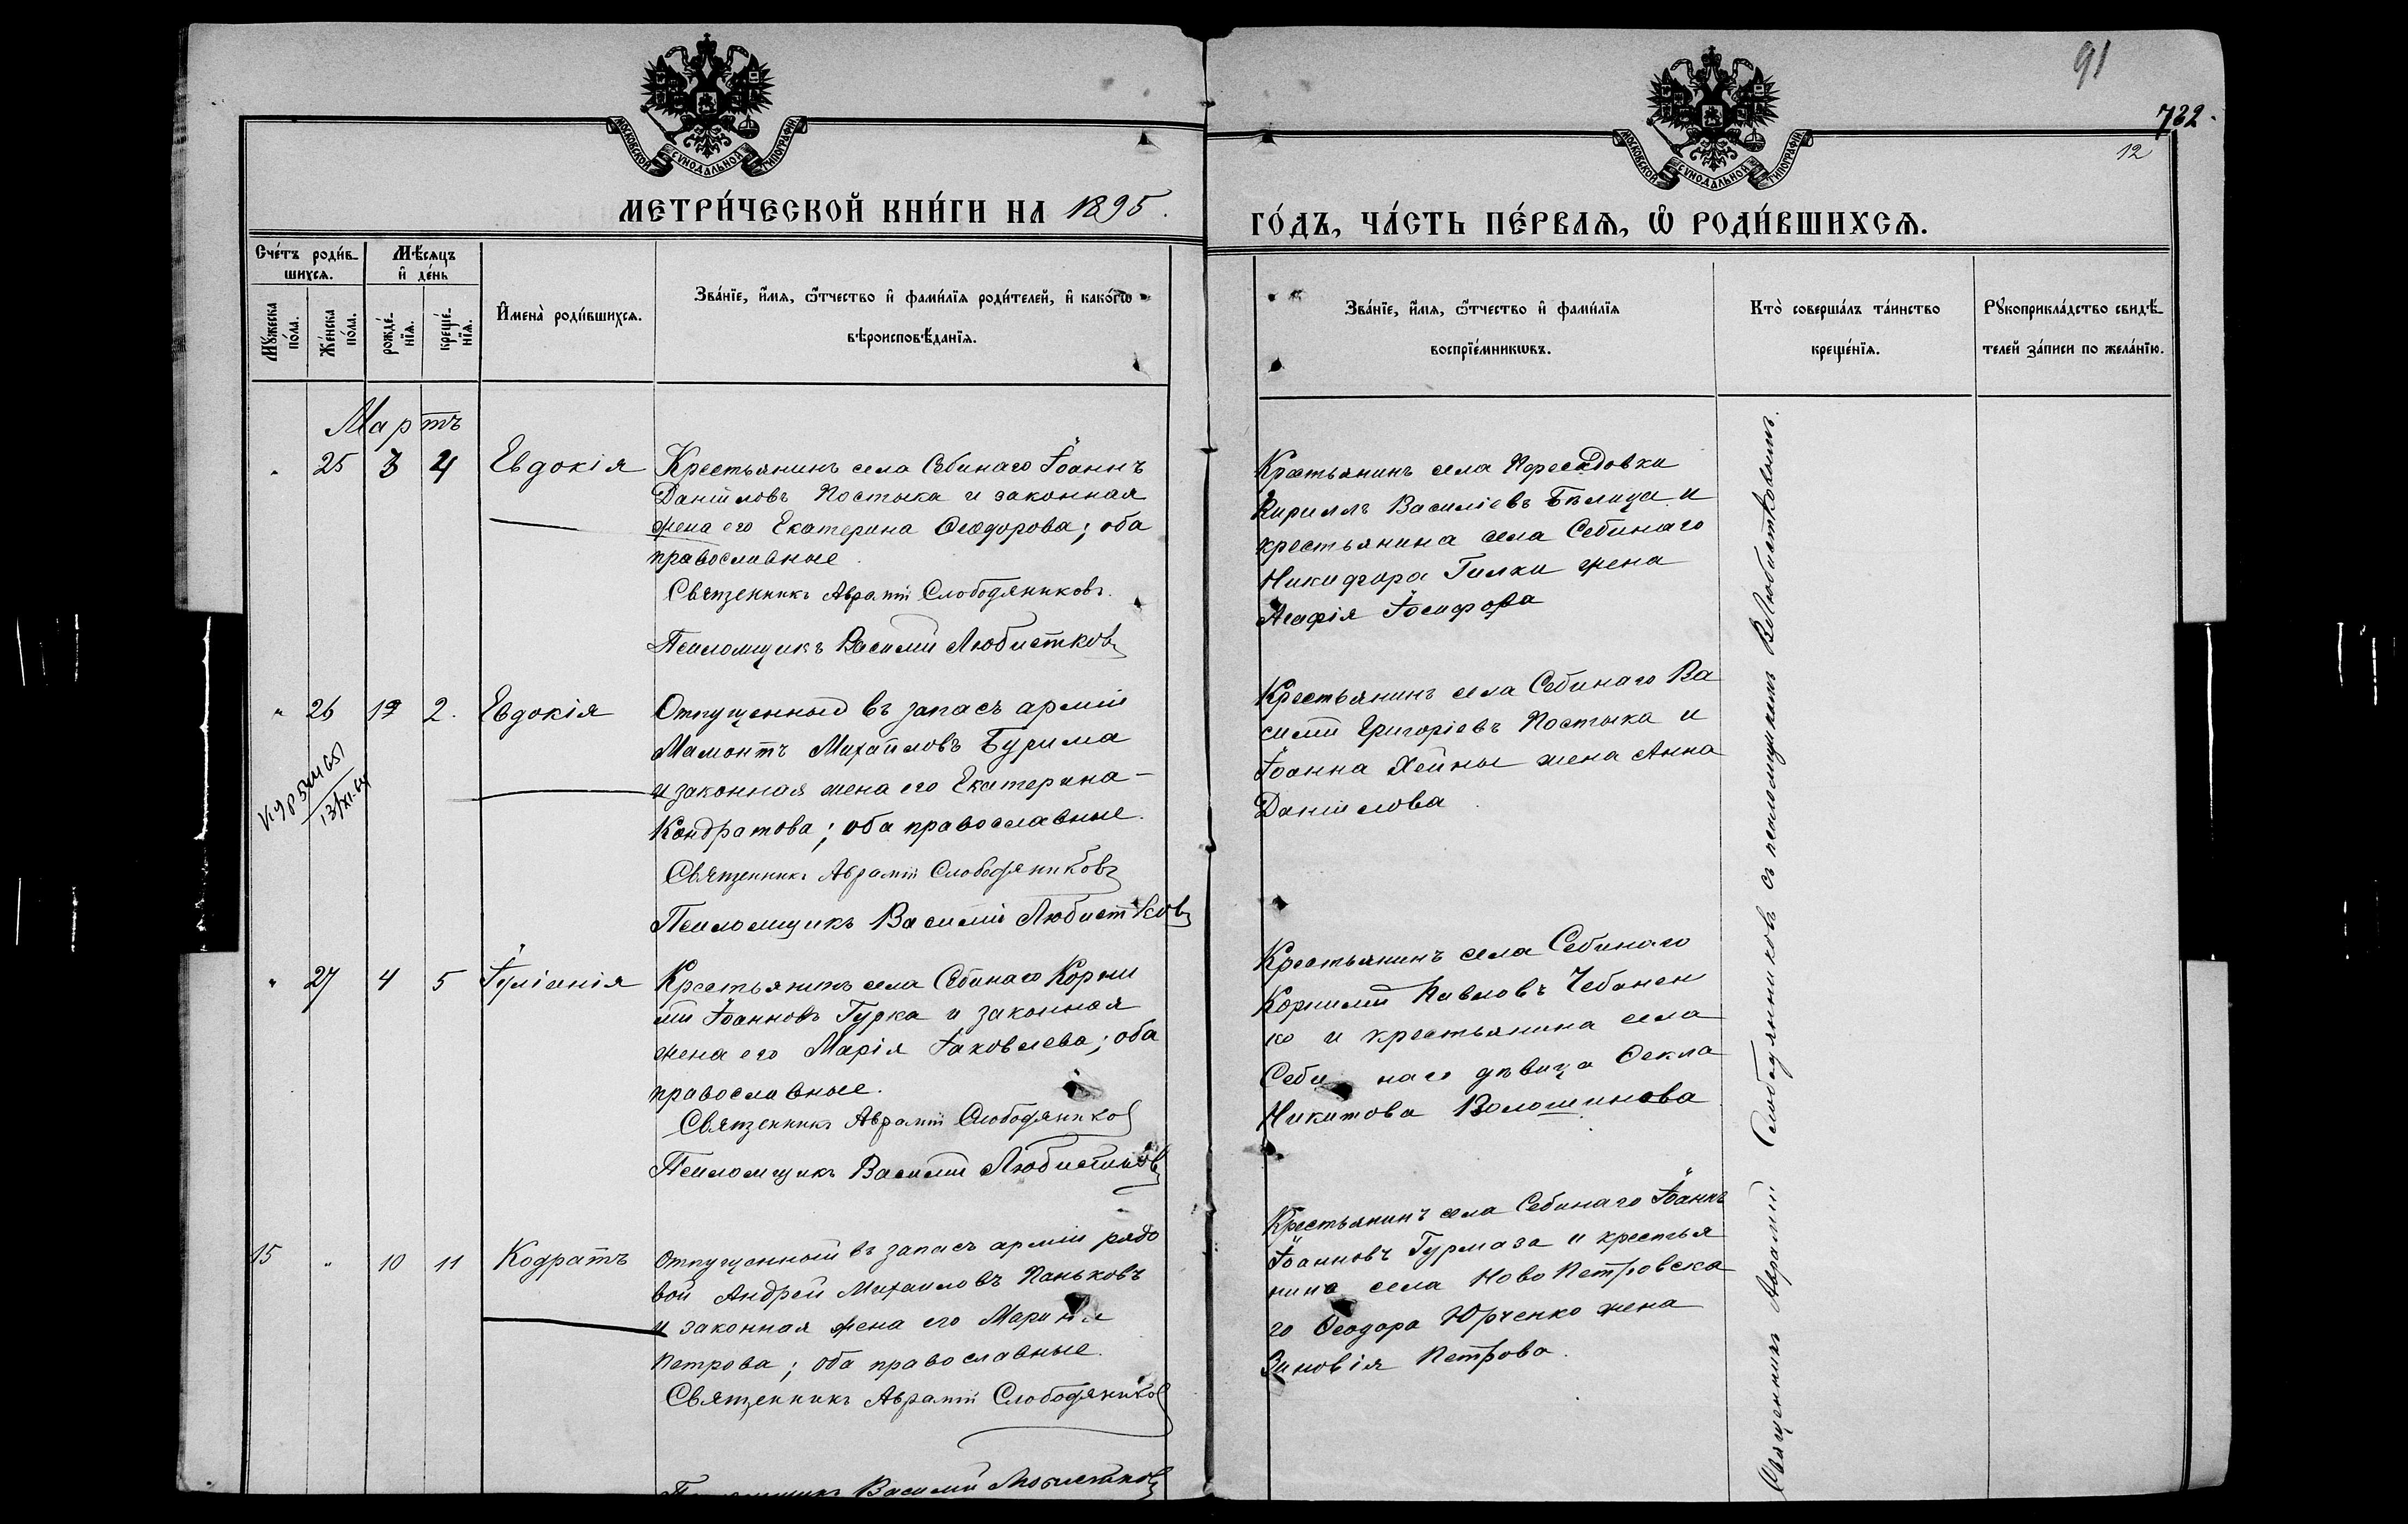 91
732.
12
МОСКОВСКОЙ СѴНОДАЛЬНОЙ ТИПОГРАФІИ
МОСКОВСКОЙ СѴНОДАЛЬНОЙ ТИПОГРАФІИ
МЕТРИ́ЧЕСКОЙ КНИ́ГИ НА 1895.
ГО́ДЪ, ЧА́СТЬ ПЕ́РВАѦ, Ѡ҆ РОДИ́ВШИХСѦ.
Сче́тъ роди́в-
шихсѧ.
Мꙋ́жеска по́ла.
Же́нска по́ла.
Мѣ́сѧцъ
и҆ де́нь
рожде́-нїѧ.
креще́-нїѧ.
И҆мена̀ роди́вшихсѧ.
Зва́нїе, и҆́мѧ, ѻ҆́тчество и҆ фами́лїѧ роди́телей, и҆ како́гѡ
вѣроисповѣ́данїѧ.
Зва́нїе, и҆́мѧ, ѻ҆́тчество и҆ фами́лїѧ
воспрїе́мникѡвъ.
Кто̀ соверша́лъ та́инство
креще́нїѧ.
Рꙋкоприкла́дство свидѣ́-
телей за́писи по жела́нїю.
Мартъ
" 25 3 4 Евдокія
Крестьянинъ села Себинаго Іоаннъ
Даніиловъ Постыка и законная
жена его Екатерина Ѳеодорова; оба
православные.
Священникъ Аврамій Слободяниковъ.
Псаломщикъ Василій Любистковъ
Крестьянинъ села Пересадовки
Кириллъ Василіевъ Бѣлица и
крестьянина села Себинаго
Никифора Гилки жена
Агафія Іосифова
" 26 2. Евдокія
Отпущенный въ запасъ арміи
Мамонтъ Михайловъ Бурима
и законная жена его Екатерина
Кондратова; оба православные.
Священникъ Аврамій Слободяниковъ
Псаломщикъ Василій Любистковъ
Крестьянинъ села Себинаго Ва
силій Григоріевъ Постыка и
Іоанна жена Анна
Даніилова
" 27 4 5 Іуліанія
Крестьянинъ села Себинаго Корни
лій Іоанновъ Гурка и законная
жена его Марія Іаковлева; оба
православные.
Священникъ Аврамій Слободяниковъ
Псаломщикъ Василій Любистковъ
Крестьянинъ села Себинаго
Корнилій Павловъ Чебанен
ко и крестьянина села
Себинаго дѣвица Ѳекла
Никитова Волошинова
15 " 10 11 Кодратъ
Отпущенный въ запасъ арміи рядо
вой Андрей Михаиловъ Паньковъ
и законная жена его
Петрова; оба православные.
Священникъ Аврамій Слободяниковъ
Псаломщикъ Василій Любистковъ
Крестьянинъ села Себинаго Іоаннъ
Іоанновъ Гурмаза и крестья
нина села Ново Петровска
го Ѳеодора Юрченко жена
Зиновія Петрова.
Священникъ Аврамій Слободянниковъ съ псаломщикомъ В. Любистковымъ.